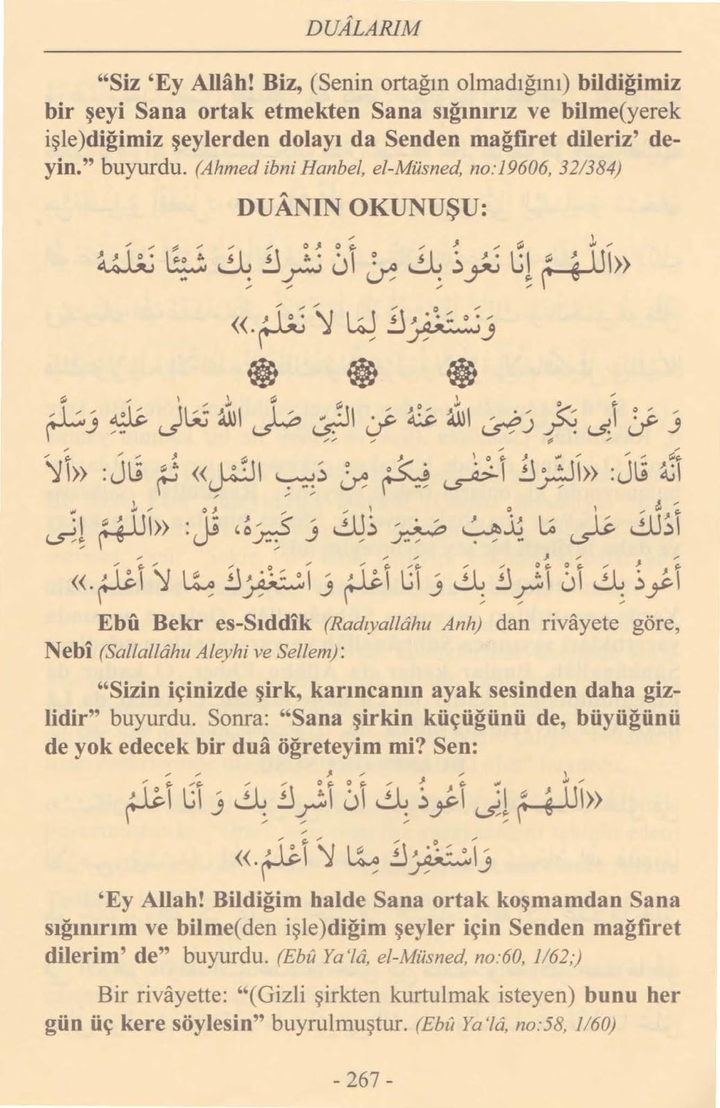 DUÂLARIM
“Siz ‘Ey Allâh! Biz, (Senin ortağın olmadığını) bildiğimiz
bir şeyi Sana ortak etmekten Sana sığınırız ve bilme(yerek
işle)diğimiz şeylerden dolayı da Senden mağfiret dileriz’ de-
yin.” buyurdu. (Ahmed ibni Hanbel, el-Müsned, no:19606, 32/384)
DUÂNIN OKUNUŞU:
«اَللّٰهُمَّ إِنَّا نَعُوذُ بِكَ مِنْ أَنْ نُشْرِكَ بِكَ شَيْئًا نَعْلَمُهُ
وَنَسْتَغْفِرُكَ لِمَا لاَ نَعْلَمُ.»
وَ عَنْ أَبِي بَكْرٍ رَضِيَ اللهُ عَنْهُ عَنِ النَّبِيِّ صَلَّى اللهُ تَعَالٰى عَلَيْهِ وَسَلَّمَ
أَنَّهُ قَالَ: «اَلشِّرْكُ أَخْفٰى فِيكُمْ مِنْ دَبِيبِ النَّمْلِ» ثُمَّ قَالَ: «أَلاَ
أَدُلُّكَ عَلٰى مَا يُذْهِبُ صَغِيرَ ذٰلِكَ وَ كَبِيرَهُ، قُلْ: «اَللّٰهُمَّ إِنِّى
أَعُوذُ بِكَ أَنْ أُشْرِكَ بِكَ وَ أَنَا أَعْلَمُ وَ أَسْتَغْفِرُكَ مِمَّا لاَ أَعْلَمُ.»
Ebû Bekr es-Sıddîk (Radıyallâhu Anh) dan rivâyete göre,
Nebî (Sallallâhu Aleyhi ve Sellem):
“Sizin içinizde şirk, karıncanın ayak sesinden daha giz-
lidir” buyurdu. Sonra: “Sana şirkin küçüğünü de, büyüğünü
de yok edecek bir duâ öğreteyim mi? Sen:
«اَللّٰهُمَّ إِنِّي أَعُوذُ بِكَ أَنْ أُشْرِكَ بِكَ وَ أَنَا أَعْلَمُ
وَأَسْتَغْفِرُكَ مِمَّا لاَ أَعْلَمُ.»
‘Ey Allah! Bildiğim halde Sana ortak koşmamdan Sana
sığınırım ve bilme(den işle)diğim şeyler için Senden mağfiret
dilerim’ de” buyurdu. (Ebû Ya‘lâ, el-Müsned, no:60, 1/62;)
Bir rivâyette: “(Gizli şirkten kurtulmak isteyen) bunu her
gün üç kere söylesin” buyrulmuştur. (Ebû Ya‘lâ, no:58, 1/60)
- 267 -